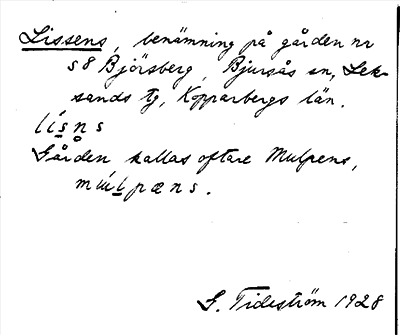 Lissens, benämning på gården nr
58 Björsberg, Bjursås sn, Lek-
sands tg, Kopparbergs län.
lísn̥s
Gården kallas oftare Mulpens,
múlpæns.
G. Tideström 1928